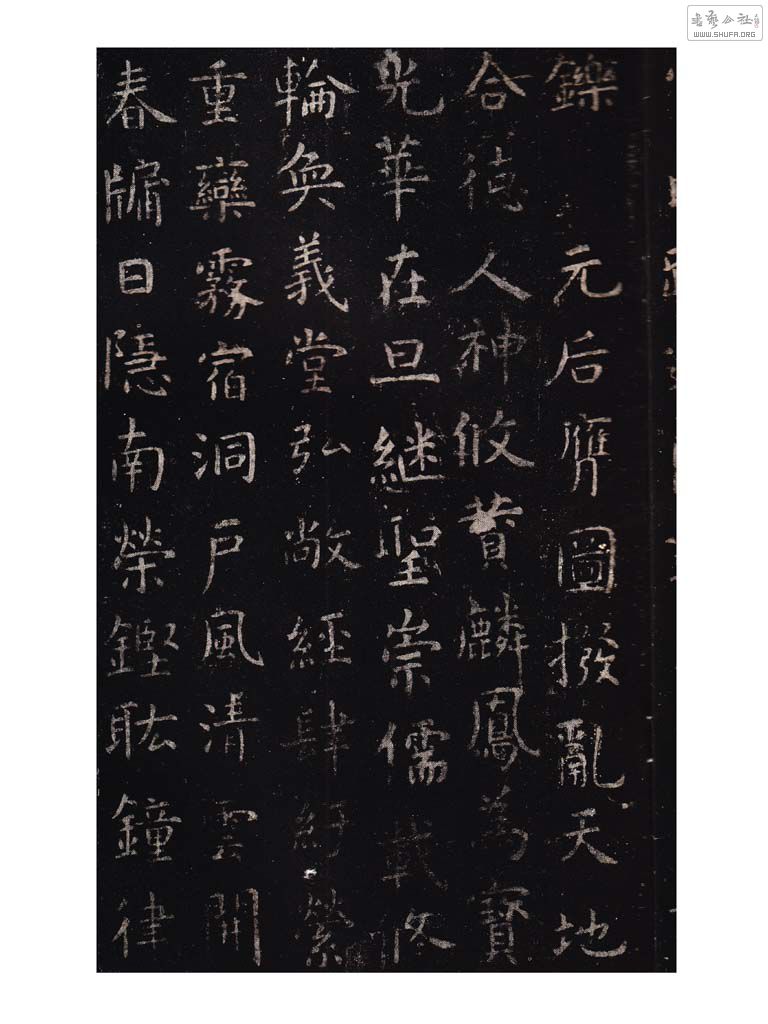 鑠　元后膺圖撥亂天地
合德人神攸賛麟鳳為寶
光華在旦継聖崇儒載修
輪奐義堂弘敞經肆紆縈
重欒霧宿洞戶風清雲開
春牖日隱南榮鏗耾鐘律
書藝公社
WWW.SHUFA.ORG